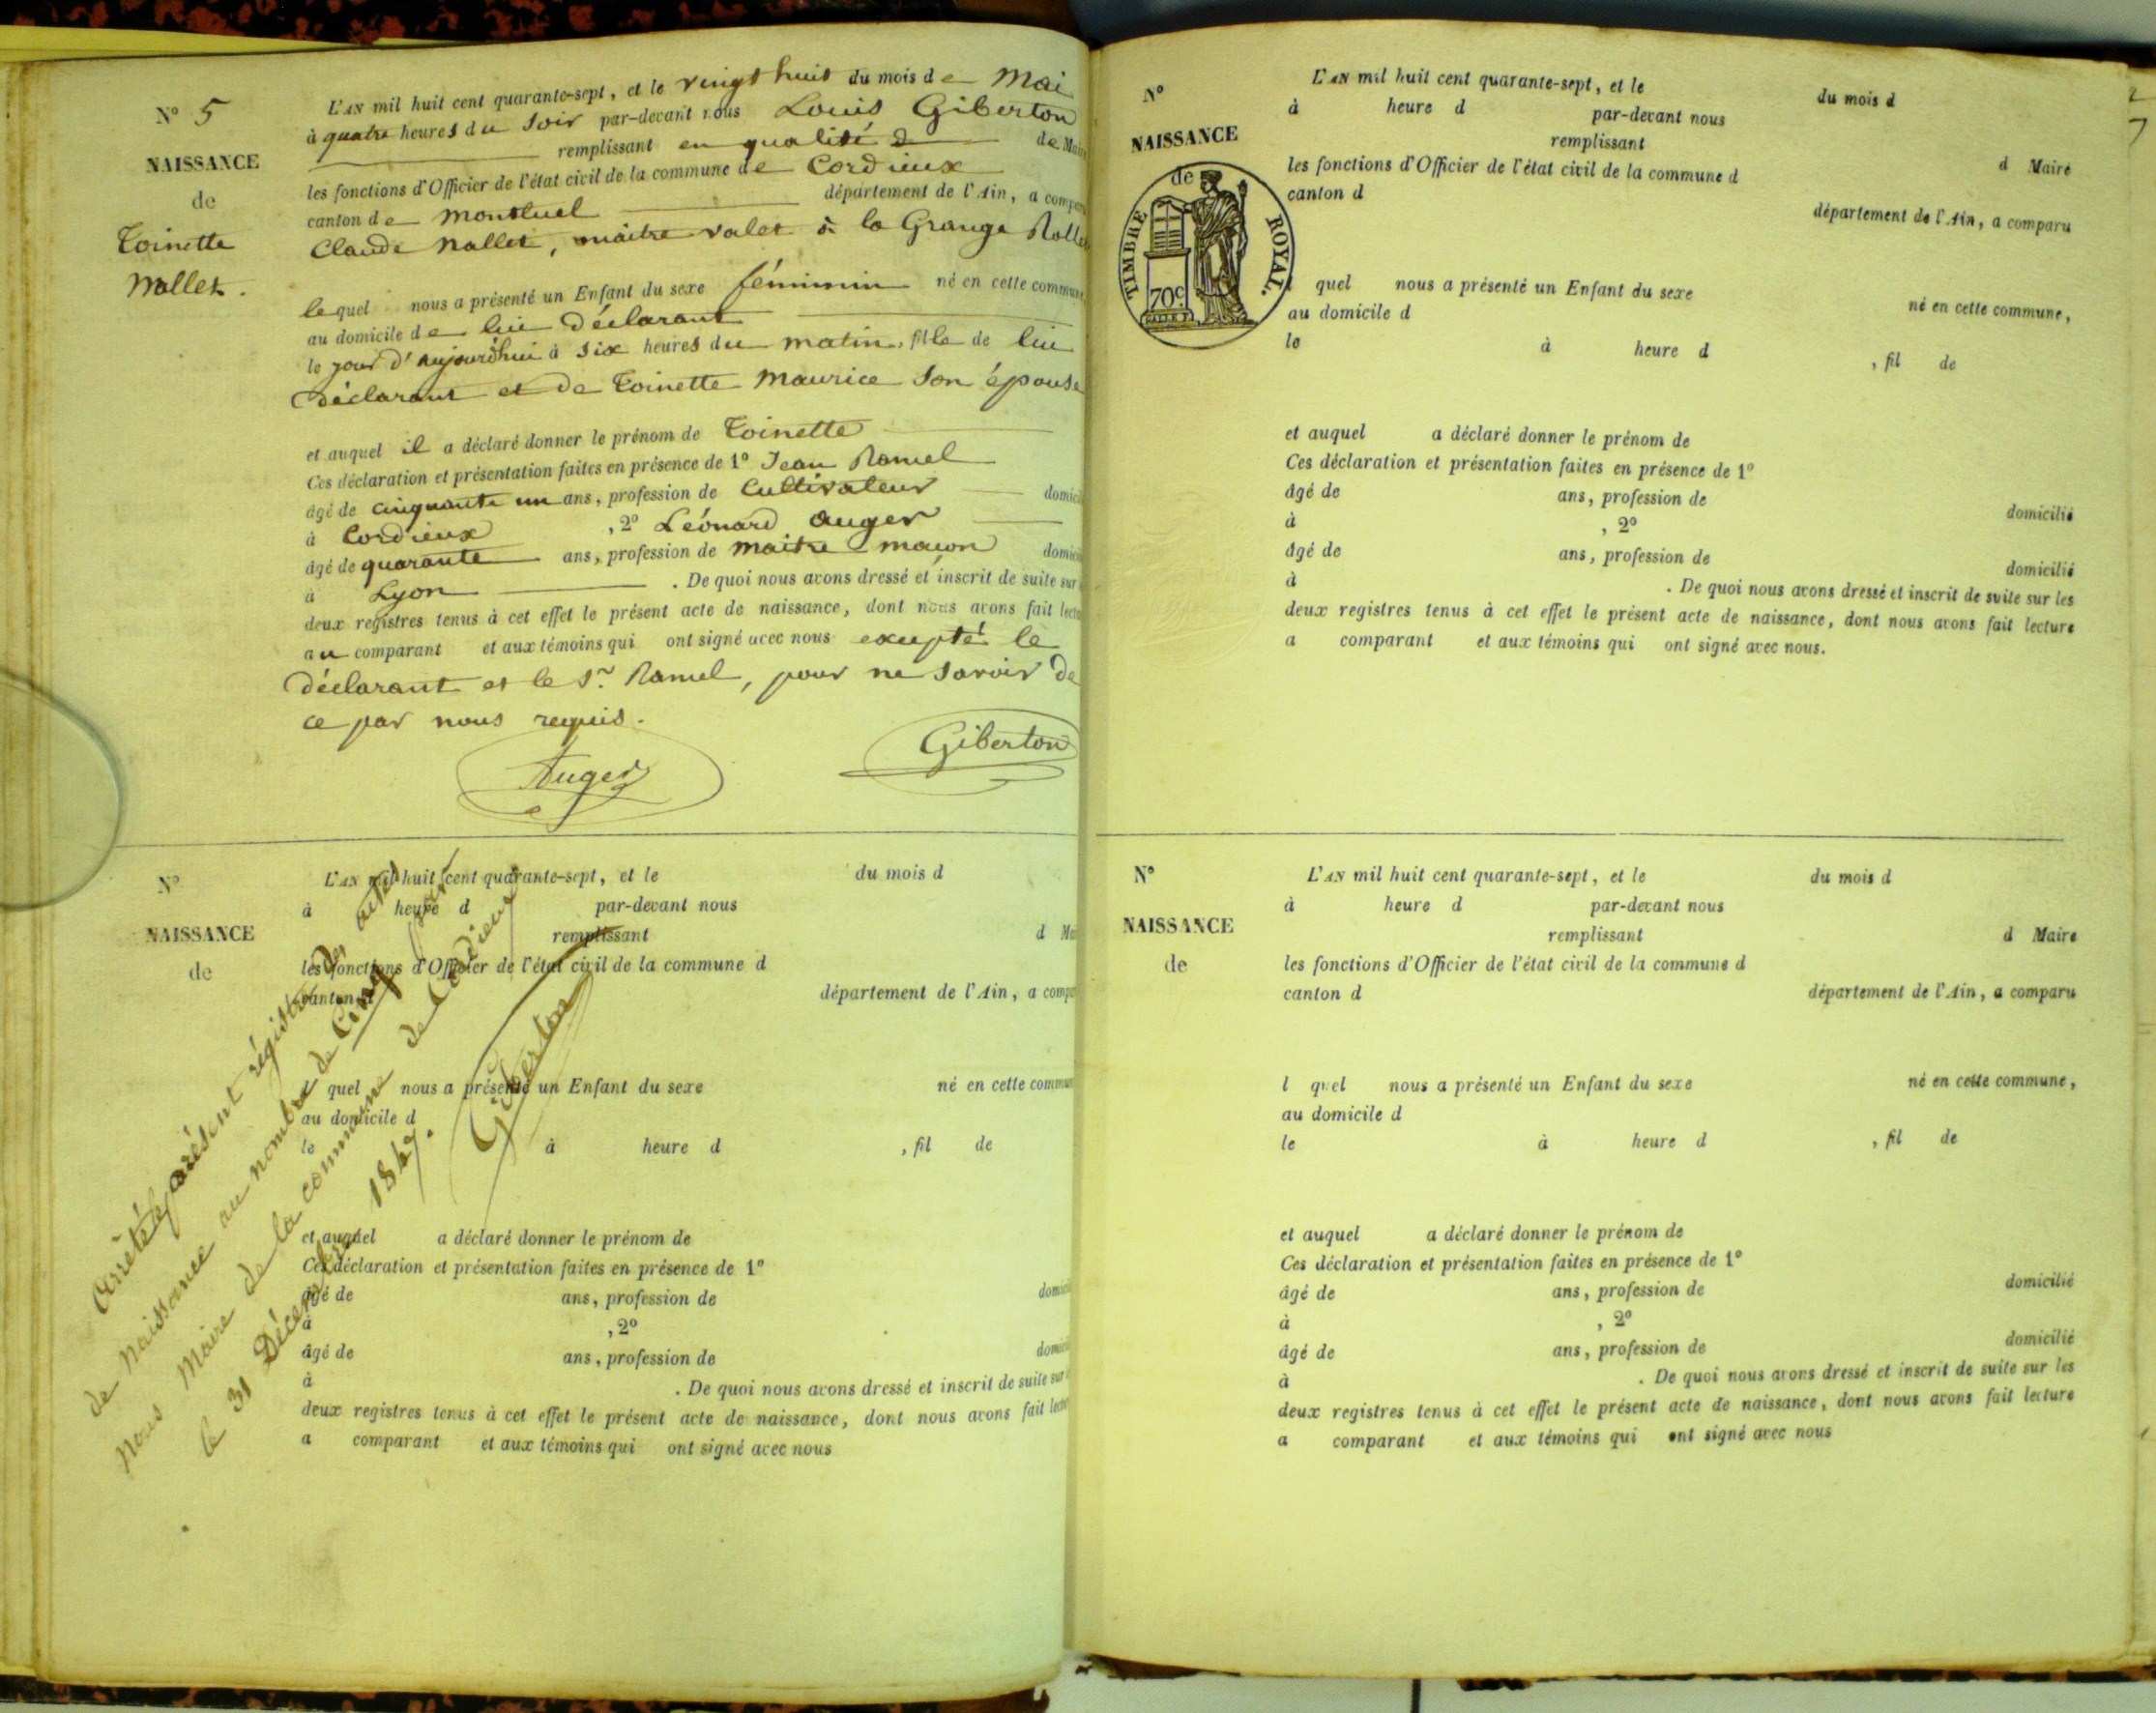 N° 5
NAISSANCE
de
Toinette
Nallet.
L'AN mil huit cent quarante-sept, et le vingt huit du mois de Mai
à quatre heures du soir par-devant nous Louis Giberton
remplissant en qualité d de Maire
les fonctions d'Officier de l'état civil de la commune de Cordieux
canton de Montluel département de l'Ain, a comparu
Claude Nallet, maître valet à la Grange Rolle
lequel nous a présenté un Enfant du sexe féminin né en cette commune
au domicile de lui déclarant
le jour d'aujourd'hui à six heures du matin, fille de lui
déclarant et de Toinette Maurice son épouse
et auquel il a déclaré donner le prénom de Toinette
Ces déclaration et présentation faites en présence de 1° Jean Ramel
âgé de cinquante un ans, profession de Cultivateur domicil
à Cordieux , 2° Léonard Auger
âgé de quarante ans, profession de maitre maçon domicil
à Lyon . De quoi nous avons dressé et inscrit de suite sur
deux registres tenus à cet effet le présent acte de naissance, dont nous avons fait lectu
au comparant et aux témoins qui ont signé avec nous excepté le
déclarant et le Sr. Ramel, pour ne savoir de
ce par nous requis.
Auger
Giberton
N°
NAISSANCE
de
L'AN mil huit cent quarante-sept, et le du mois d
à heure d par-devant nous
remplissant d Mai
les fonctions d'Officier de l'état civil de la commune d
canton d département de l'Ain, a compa
l quel nous a présenté un Enfant du sexe né en cette commun
au domicile d
le à heure d , fil de
et auquel a déclaré donner le prénom de
Ces déclaration et présentation faites en présence de 1°
âgé de ans, profession de domicil
à , 2°
âgé de ans, profession de domicil
à . De quoi nous avons dressé et inscrit de suite sur
deux registres tenus à cet effet le présent acte de naissance, dont nous avons fait lectu
a comparant et aux témoins qui ont signé avec nous
Arrêté le présent régistre des actes
de naissance au nombre de Cinq par
nous Maire de la commune de Cordieux
le 31 Décembre 1847.
Giberton
N°
NAISSANCE
de
TIMBRE ROYAL.
70c
L'AN mil huit cent quarante-sept, et le du mois d
à heure d par-devant nous
remplissant d Maire
les fonctions d'Officier de l'état civil de la commune d
canton d département de l'Ain, a comparu
quel nous a présenté un Enfant du sexe né en cette commune,
au domicile d
le à heure d , fil de
et auquel a déclaré donner le prénom de
Ces déclaration et présentation faites en présence de 1°
âgé de ans, profession de domicilié
à , 2°
âgé de ans, profession de domicilié
à . De quoi nous avons dressé et inscrit de suite sur les
deux registres tenus à cet effet le présent acte de naissance, dont nous avons fait lecture
a comparant et aux témoins qui ont signé avec nous.
N°
NAISSANCE
de
L'AN mil huit cent quarante-sept, et le du mois d
à heure d par-devant nous
remplissant d Maire
les fonctions d'Officier de l'état civil de la commune d
canton d département de l'Ain, a comparu
l quel nous a présenté un Enfant du sexe né en cette commune,
au domicile d
le à heure d , fil de
et auquel a déclaré donner le prénom de
Ces déclaration et présentation faites en présence de 1°
âgé de ans, profession de domicilié
à , 2°
âgé de ans, profession de domicilié
à . De quoi nous avons dressé et inscrit de suite sur les
deux registres tenus à cet effet le présent acte de naissance, dont nous avons fait lecture
a comparant et aux témoins qui ont signé avec nous